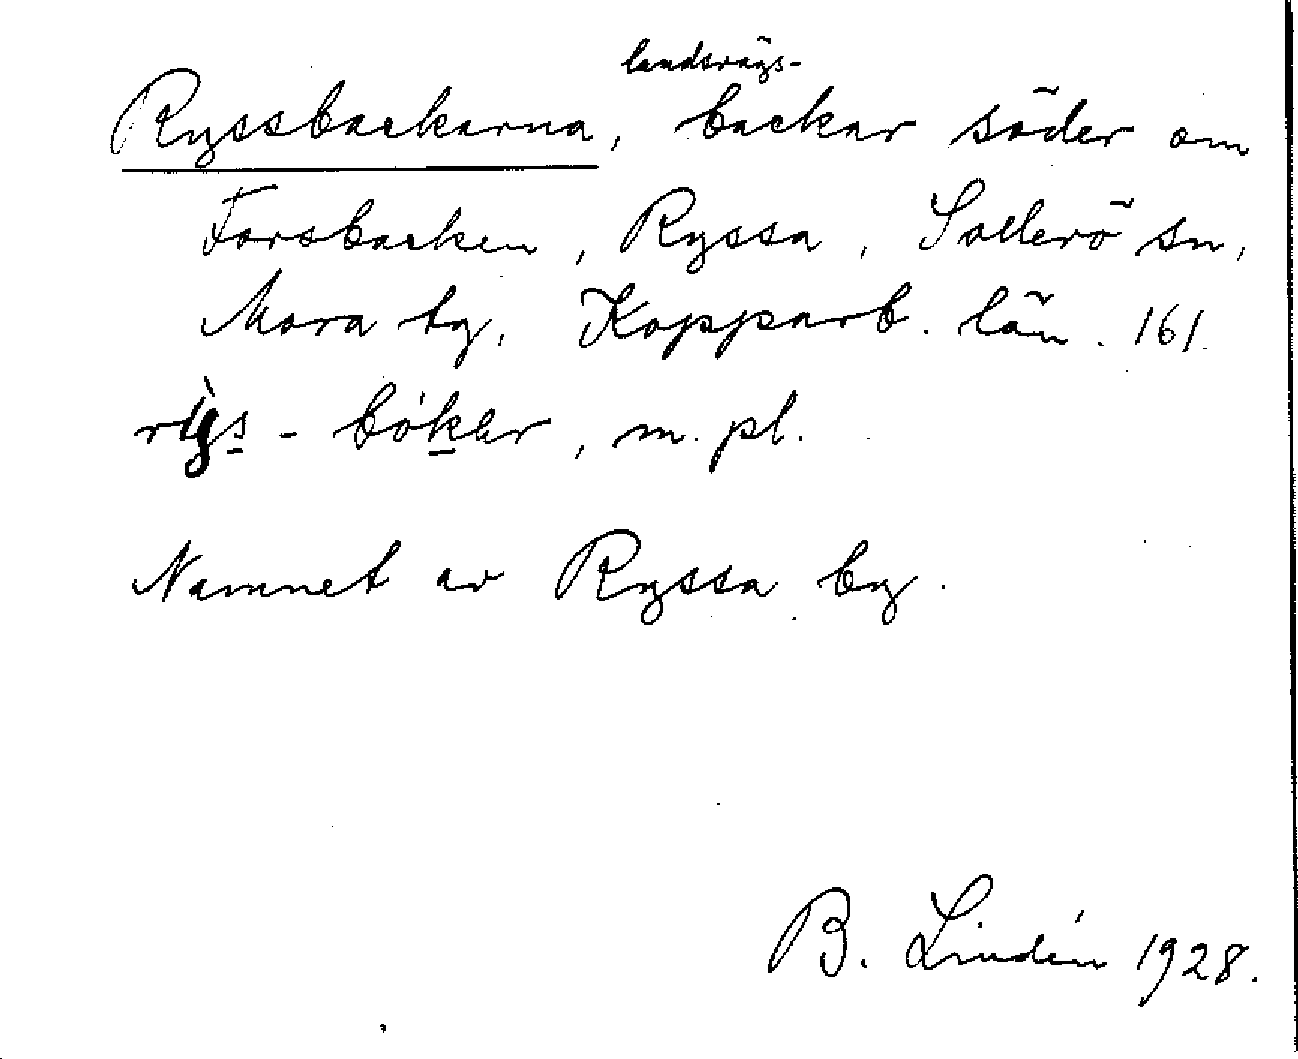 landsvägs-
Ryssbackarna, backar söder om
Forsbacken, Ryssa, Sollerö sn,
Mora tg, Kopparb. län. 161.
- bókar, m. pl.
Namnet av Ryssa by.
B. Lindén 1928.